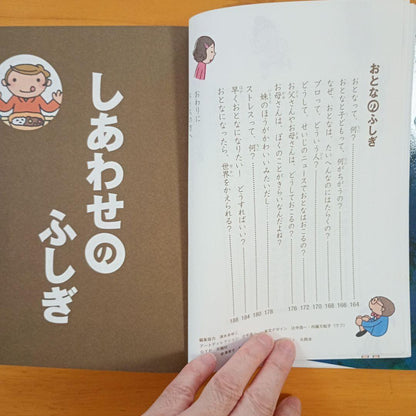 おとなのふしぎ
おとなって、何?……164
おとなと子どもって、何がちがうの?……166
なぜ、おとなは、たいへんなのにはたらくの?……168
プロって、どういう人?……170
どうして、せいじのニュースでおとなはおこるの?……172
お父さんやお母さんは、どうしておこるの?……176
お母さんは、ぼくのことがきらいなんだよね?
妹のほうがかわいいみたいだし。……178
ストレスって、何?……180
早くおとなになりたい! どうすればいい?……184
おとなになったら、世界をかえられる?……188
おわりに
編集協力
しあわせの
ふしぎ